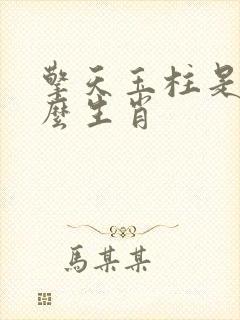 擎天玉柱是
麽生肖
馬某某